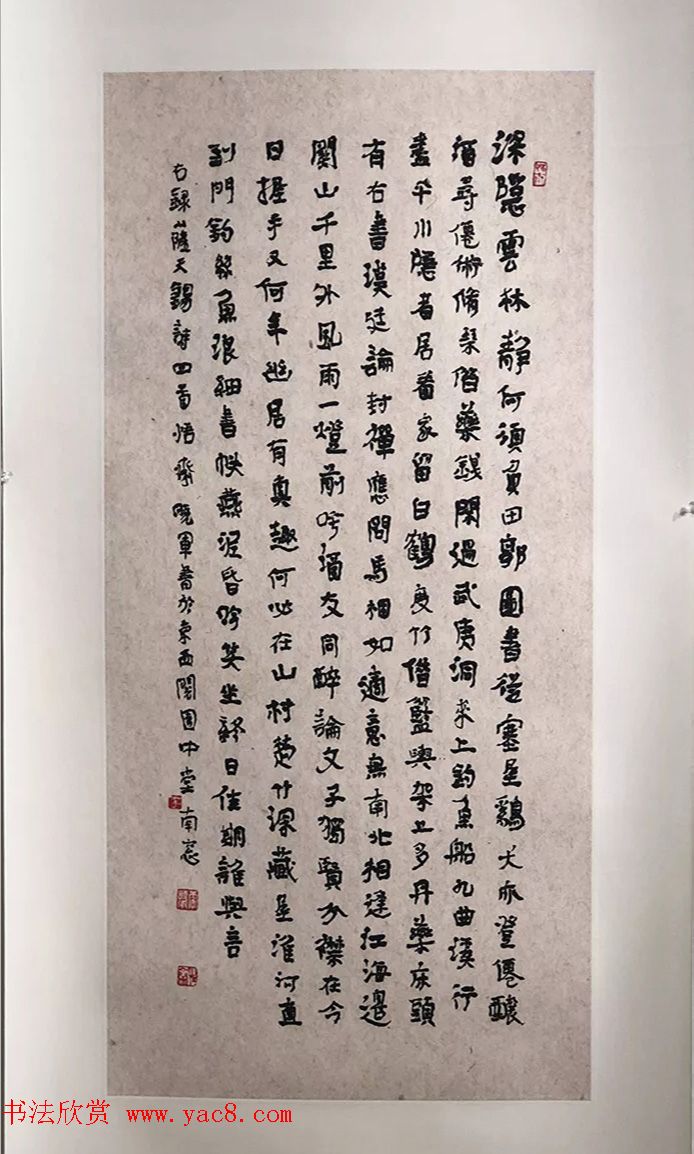 深隱雲林靜何須負田郭圖書從塞屋鷄犬亦登僊釀
酒尋僊術脩琴借藥錢閑過武夷洞來上釣魚船九曲溪行
盡平川隱者居看家留白鶴度竹借籃輿架上多丹藥床頭
有古書漢廷論封禪應問馬相如適意無南北相逢江海邊
關山千里外風雨一燈前酒友同醉論文子獨賢分襟在今
日握手又何年幽居有真趣何必在山村楚竹深藏屋淮河直
到門釣絲魚浪細書帙燕泥昏吟笑坐終日佳期誰與言
右録薩天錫詩四首悟齋曉軍書於東西關園中堂南窗
书法欣赏 www.yac8.com